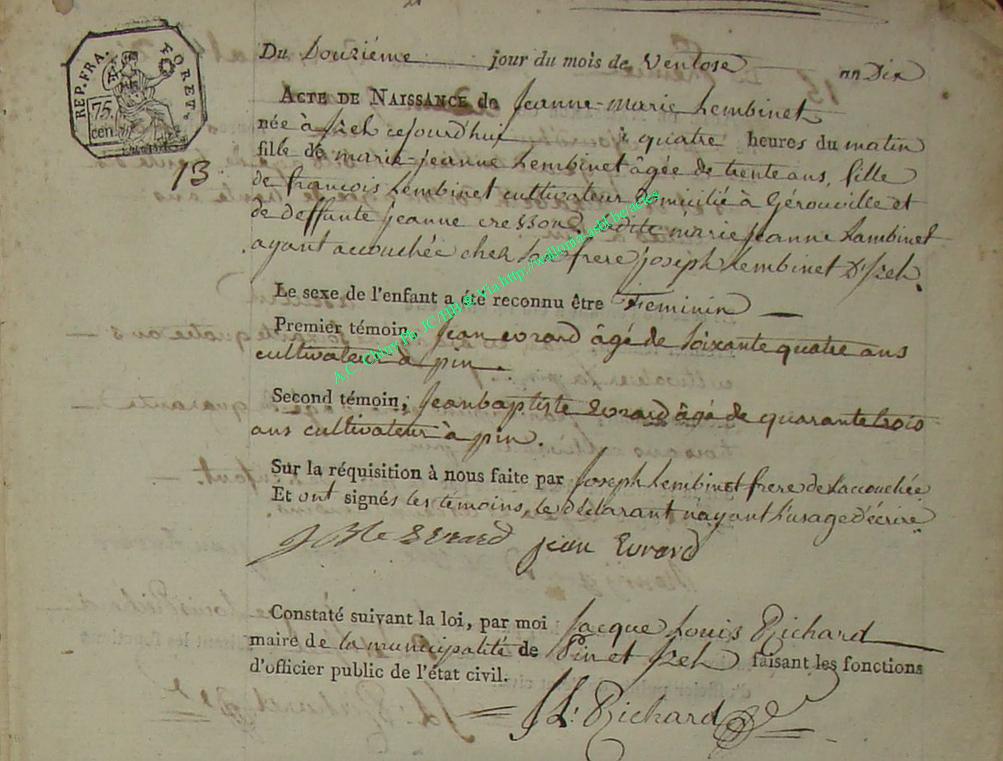 REP. FRA. FORET.
75. cen.
13
Du Douziéme jour du mois de Ventose an Dix
ACTE DE NAISSANCE de Jeanne-marie Lembinet
née à Izel cejourd'hui à quatre heures du matin
fille de marie-jeanne Lembinet âgée de trente ans, fille
de françois Lembinet cultivateur domicilié à Gérouville et
de deffunte jeanne cresson. Ladite marie jeanne Lambinet
ayant accouchée chez son frere joseph Lembinet D'Izel.
Le sexe de l'enfant a été reconnu être Feminin
Premier témoin, Jean evrard âgé de soixante quatre ans
cultivateur à pin.
Second témoin, Jean baptiste Evrard âgé de quarante trois
ans cultivateur à pin.
Sur la réquisition à nous faite par Joseph Lembinet frere de L'accouchée
Et ont signés les temoins, le Déclarant n'ayant l'usage d'écrire
Evrard jean Evrard
Constaté suivant la loi, par moi Jacque Louis Richard
maire de la municipalité de Pin et Izel faisant les fonctions
d'officier public de l'état civil.
JL: Richard